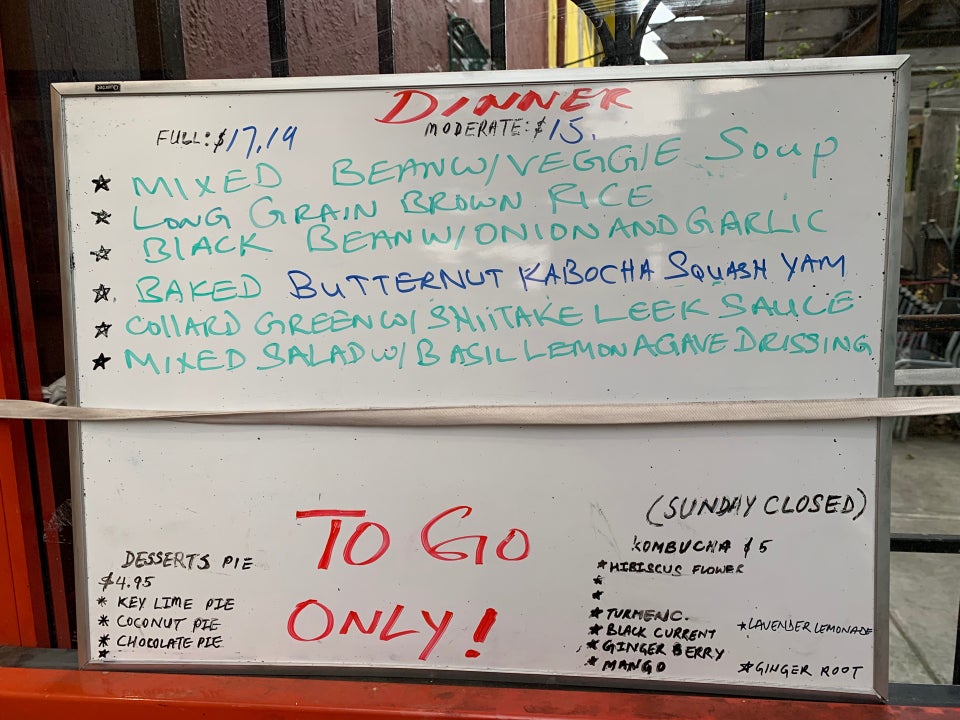 Quartet
DINNER
FULL: $17.19 MODERATE: $15.
MIXED BEAN W/ VEGGIE Soup
LONG GRAIN BROWN RICE
BLACK BEAN W/ ONION AND GARLIC
BAKED BUTTERNUT KABOCHA SQUASH YAM
COLLARD GREEN W/ SHIITAKE LEEK SAUCE
MIXED SALAD W/ BASIL LEMON AGAVE DRISSING
TO GO
ONLY!
DESSERTS PIE
$4.95
* KEY LIME PIE
* COCONUT PIE
* CHOCOLATE PIE
*
(SUNDAY CLOSED)
KOMBUCHA $5
* HIBISCUS FLOWER
*
*
* TURMERIC.
* BLACK CURRENT
* GINGER BERRY
* MANGO
* LAVENDER LEMONADE
* GINGER ROOT